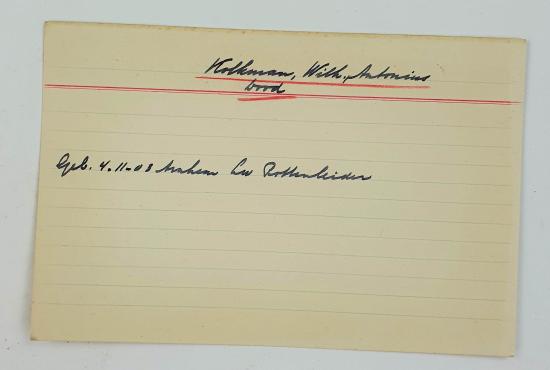 Kolkman, Wilh, Antonius
Dood
Geb. 4.11-03 Arnhem Lw Rottenleider